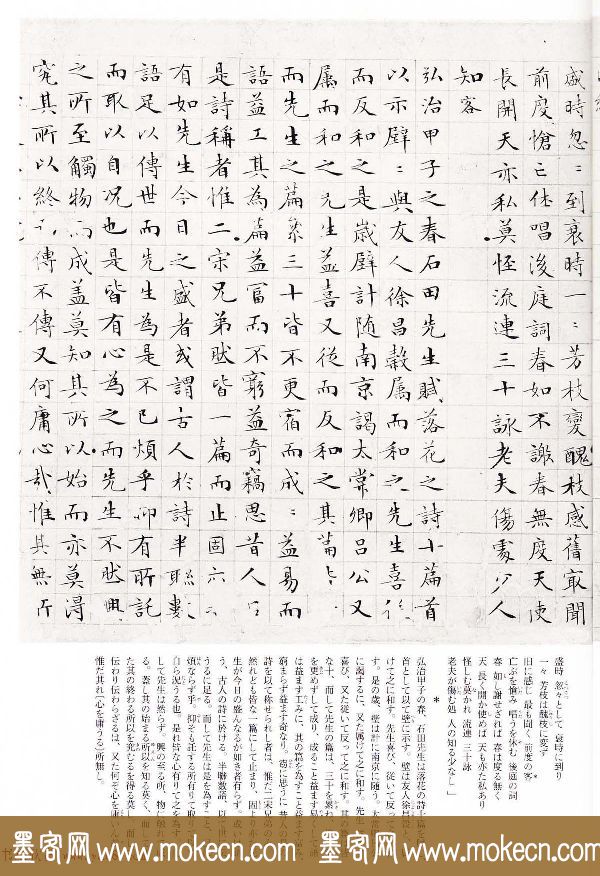 盛時忽〻到衰時一〻芳枝變醜枝感舊最聞
前度愴亡休唱後庭詞春如不謝春無度天使
長開天亦私莫怪流連三十詠老夫傷處少人
知客
弘治甲子之春石田先生賦落花之詩十篇首
以示璧〻與友人徐昌榖屬而和之先生喜從
而反和之是歲璧計隨南京謁太常卿呂公又
屬而和之先生益喜又從而反和之其篇
而先生之篇累三十皆不更宿而成〻益易而
語益工其為篇益富而不窮益奇竊思昔人
是詩稱者惟二宋兄弟然皆一篇而止固
有如先生今日之盛者或謂古人於詩半聯數
語足以傳世而先生為是不已煩乎仰有所託
而取以自況也是皆有心為之而先生不然興
之所至觸物而成蓋莫知其所以始而亦莫得
究其所以終 傳不傳又何庸心哉惟其無所
盛時 忽々として 衰時に到り
一々 芳枝は醜枝に変ず
旧に感じ 最も聞く 前度の客
亡ぶを愴み 唱うを休む 後庭の詞
春 如し謝せざれば 春は度る無く
天 長く開か使めば 天も亦た私あり
怪しむ莫かれ 流連 三十詠
老夫が傷む処 人の知る少なし」
*
弘治甲子の春、石田先生は落花の詩十篇を
首として以て璧に示す。璧は友人徐昌
けて之に和す。先生喜び、従いて反って
す。是の歳、璧は計に南京に随う。太常
に謁するに、又た属けて之に和す。先生
喜び、又た従いて反って之に和す。其の
な十、而して先生の篇は、三十を累ね
を更めずして成り、成ること益ます易
は益ます工みに、其の篇を為すこと益ます
窮まらず益ます奇なり。竊に思うに 昔の人
詩を以て称せられし者は、惟だ二宋兄
然れども皆な一篇にして止まり、固より
生が今日の盛んなるが如き者有らず。或
う、古人の詩に於ける、半聯数語、以て世
うるに足る。而して先生は是を為すこと
煩ならず乎、抑そも託する所有りて取り
自ら況うる也。是れ皆な心有りて之を為す
して先生は然らず。興の至る所、物に触れ
る。蓋し其の始まる所以を知る莫く、而し
た其の終わる所以を究むるを得る莫し。而し
伝わり伝わらざるは、又た何ぞ心を庸いん
惟だ其れ〔心を庸うる〕所無し。
墨客网 www.mokecn.com 墨客网 www.mokecn.com